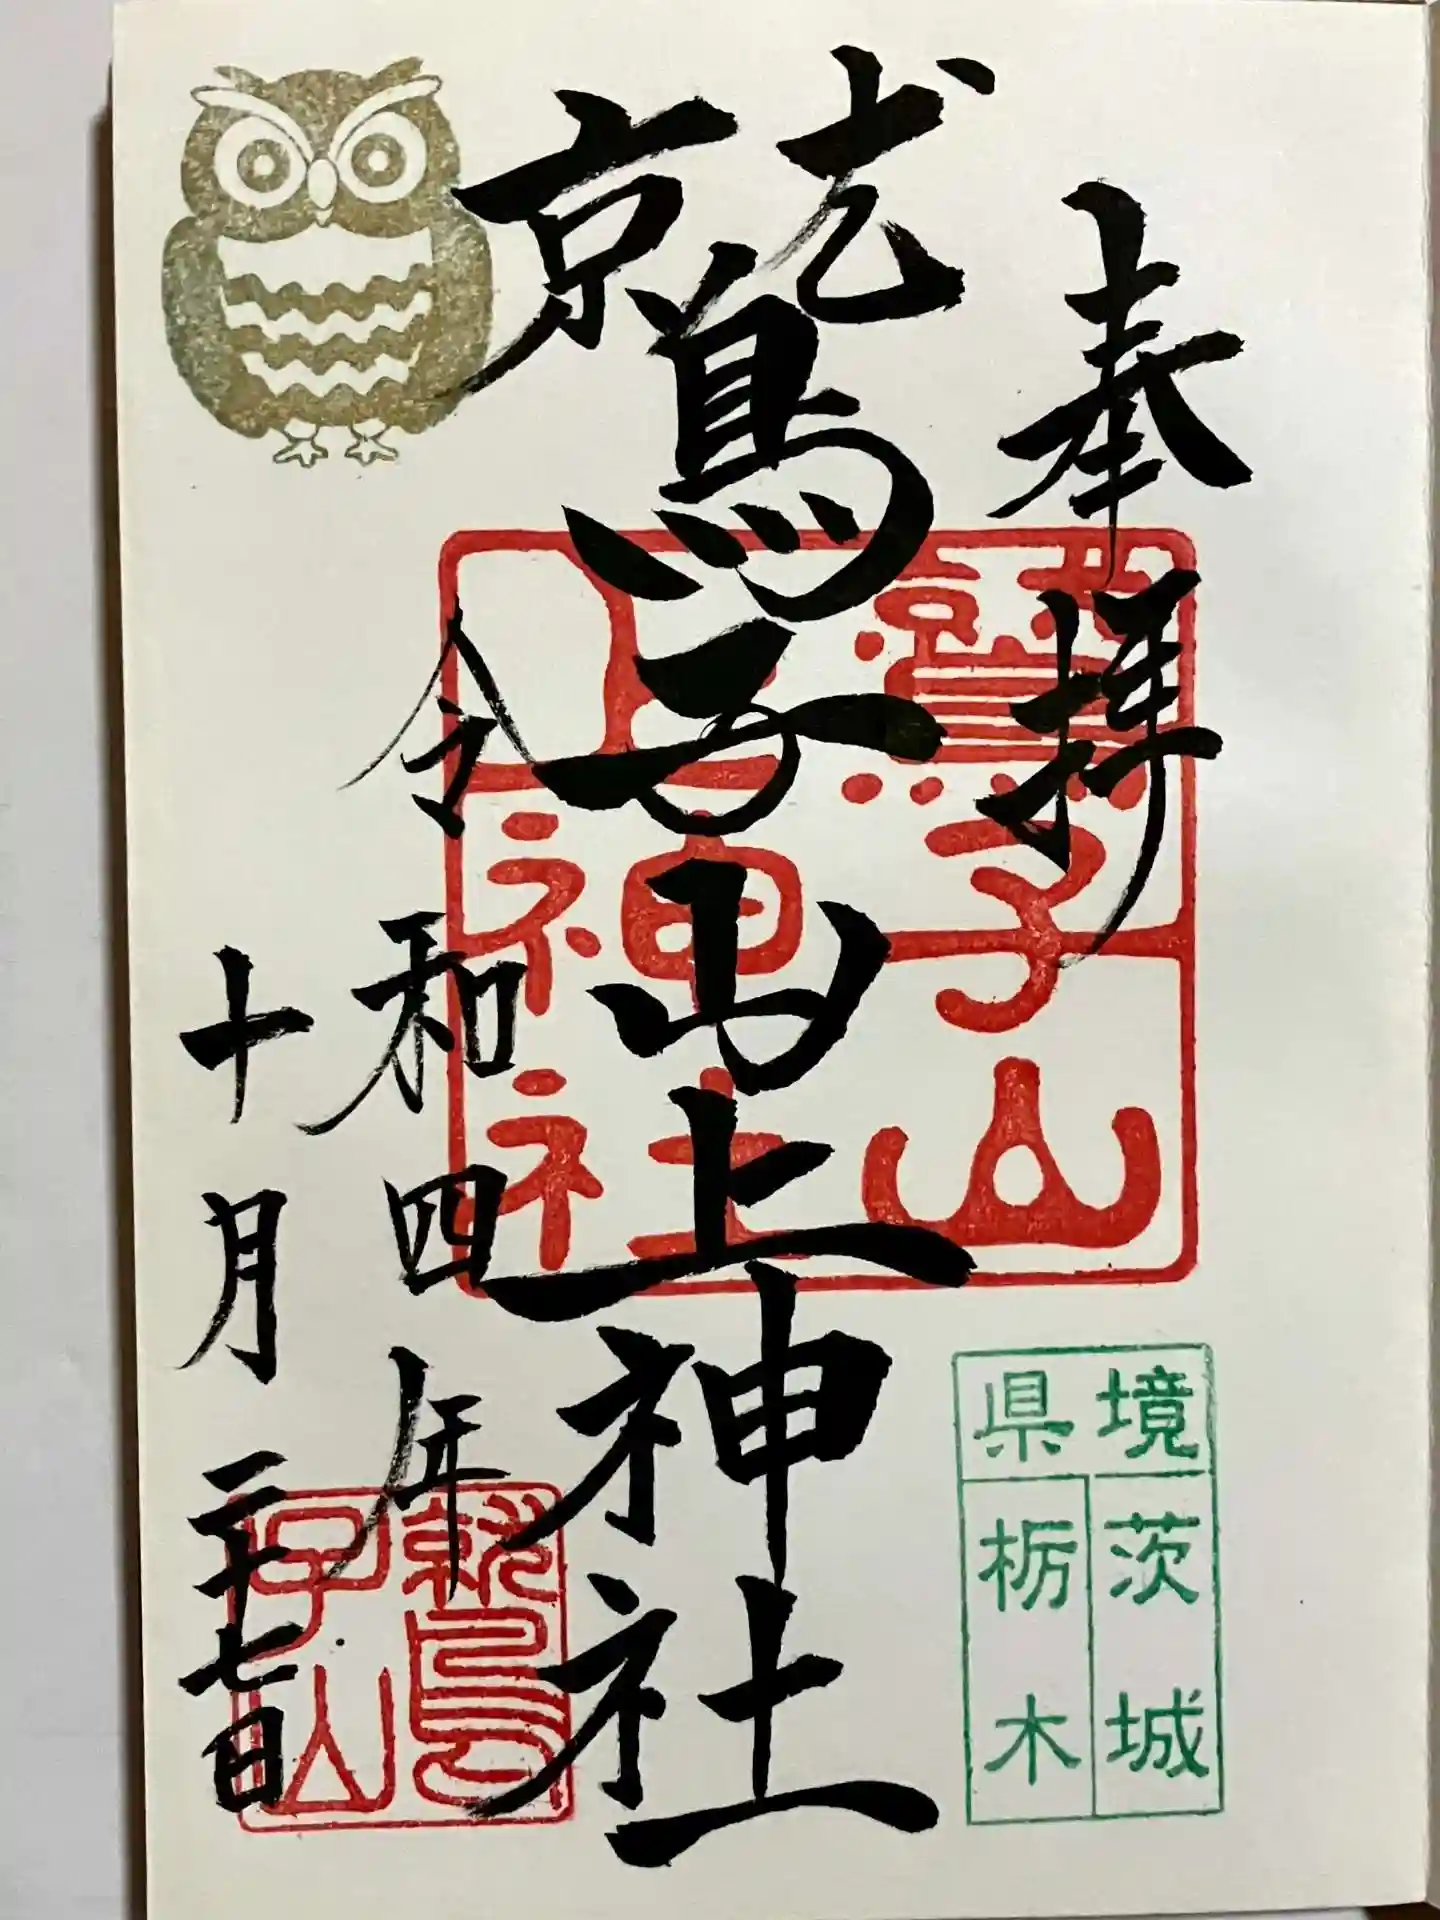 奉拝
鷲子山上神社
令和四年
十月二十七日
鷲子山
上神社
鷲子山
県境
茨城
栃木